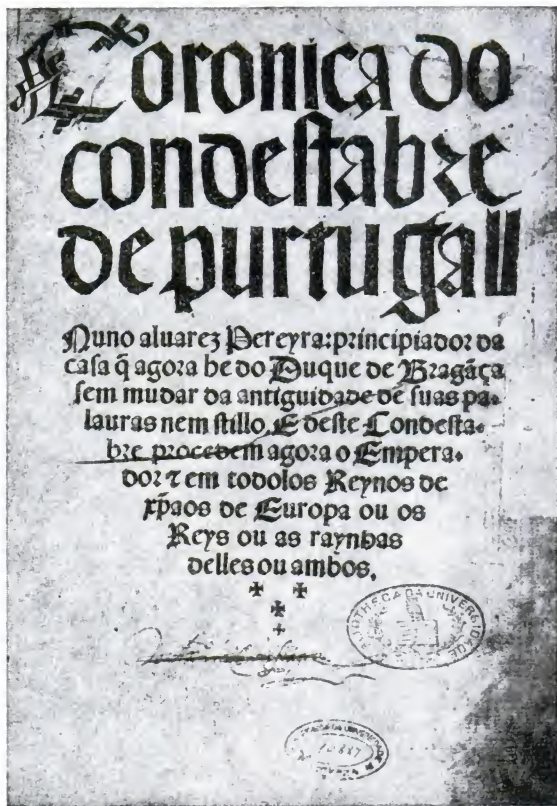 Coronica do
condeſtabre
de purtugall
Nuno aluarez Pereyra: principiador da
caſa q̃ agora he do Duque de Bragãça
ſem mudar da antiguidade de ſuas pa-
lauras nem ſtillo. E deſte Condeſta-
bre procedem agora o Empera-
dor ⁊ em todolos Reynos de
xp̃aos de Europa ou os
Reys ou as raynhas
delles ou ambos.